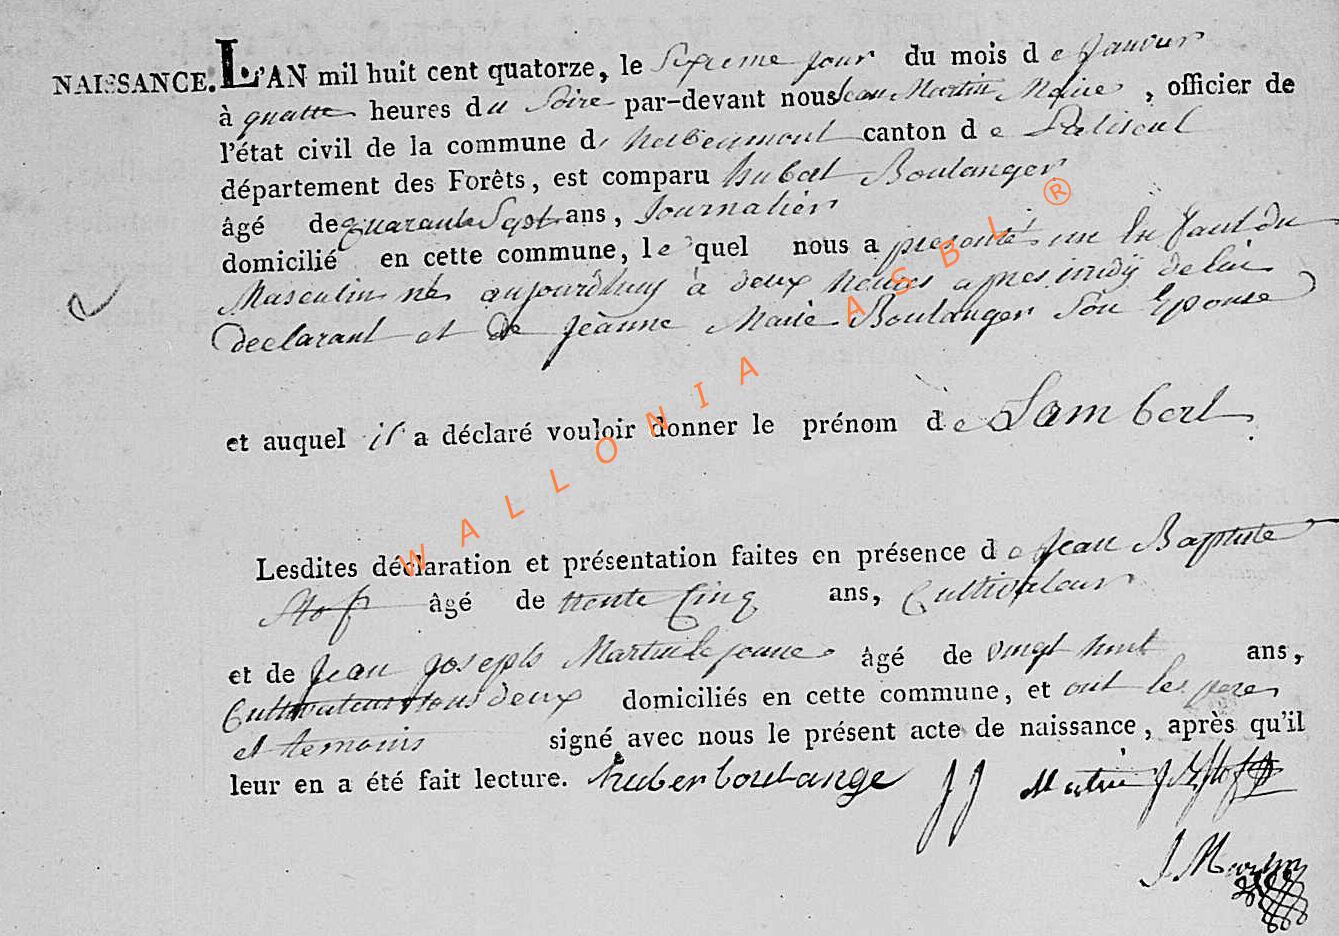 NAISSANCE. L'AN mil huit cent quatorze, le Septeme jour du mois de Janvier
à quattre heures du Soire par-devant nous Jean Martin Maire, officier de
l'état civil de la commune de herbeumont canton de Paliseul
département des Forêts, est comparu hubert Boulanger
âgé de quarante Sept ans, Journalier
domicilié en cette commune, le quel nous a presenté un Enfant du
Masculin né aujourdhuy à deux heures apres midy de lui
declarant et de Jeanne Marie Boulanger Son Epouse
et auquel il a déclaré vouloir donner le prénom de Lambert.
Lesdites déclaration et présentation faites en présence de Jean Baptiste
Stof âgé de trente Cinq ans, Cultivateur
et de Jean Joseph Martin le jeune âgé de vingt huit ans,
Cultivateur tous deux domiciliés en cette commune, et ont les peres
et temoins signé avec nous le présent acte de naissance, après qu'il
leur en a été fait lecture. huberboulange JJ Martin J B Stof
J Martin
WALLONIA ASBL ®